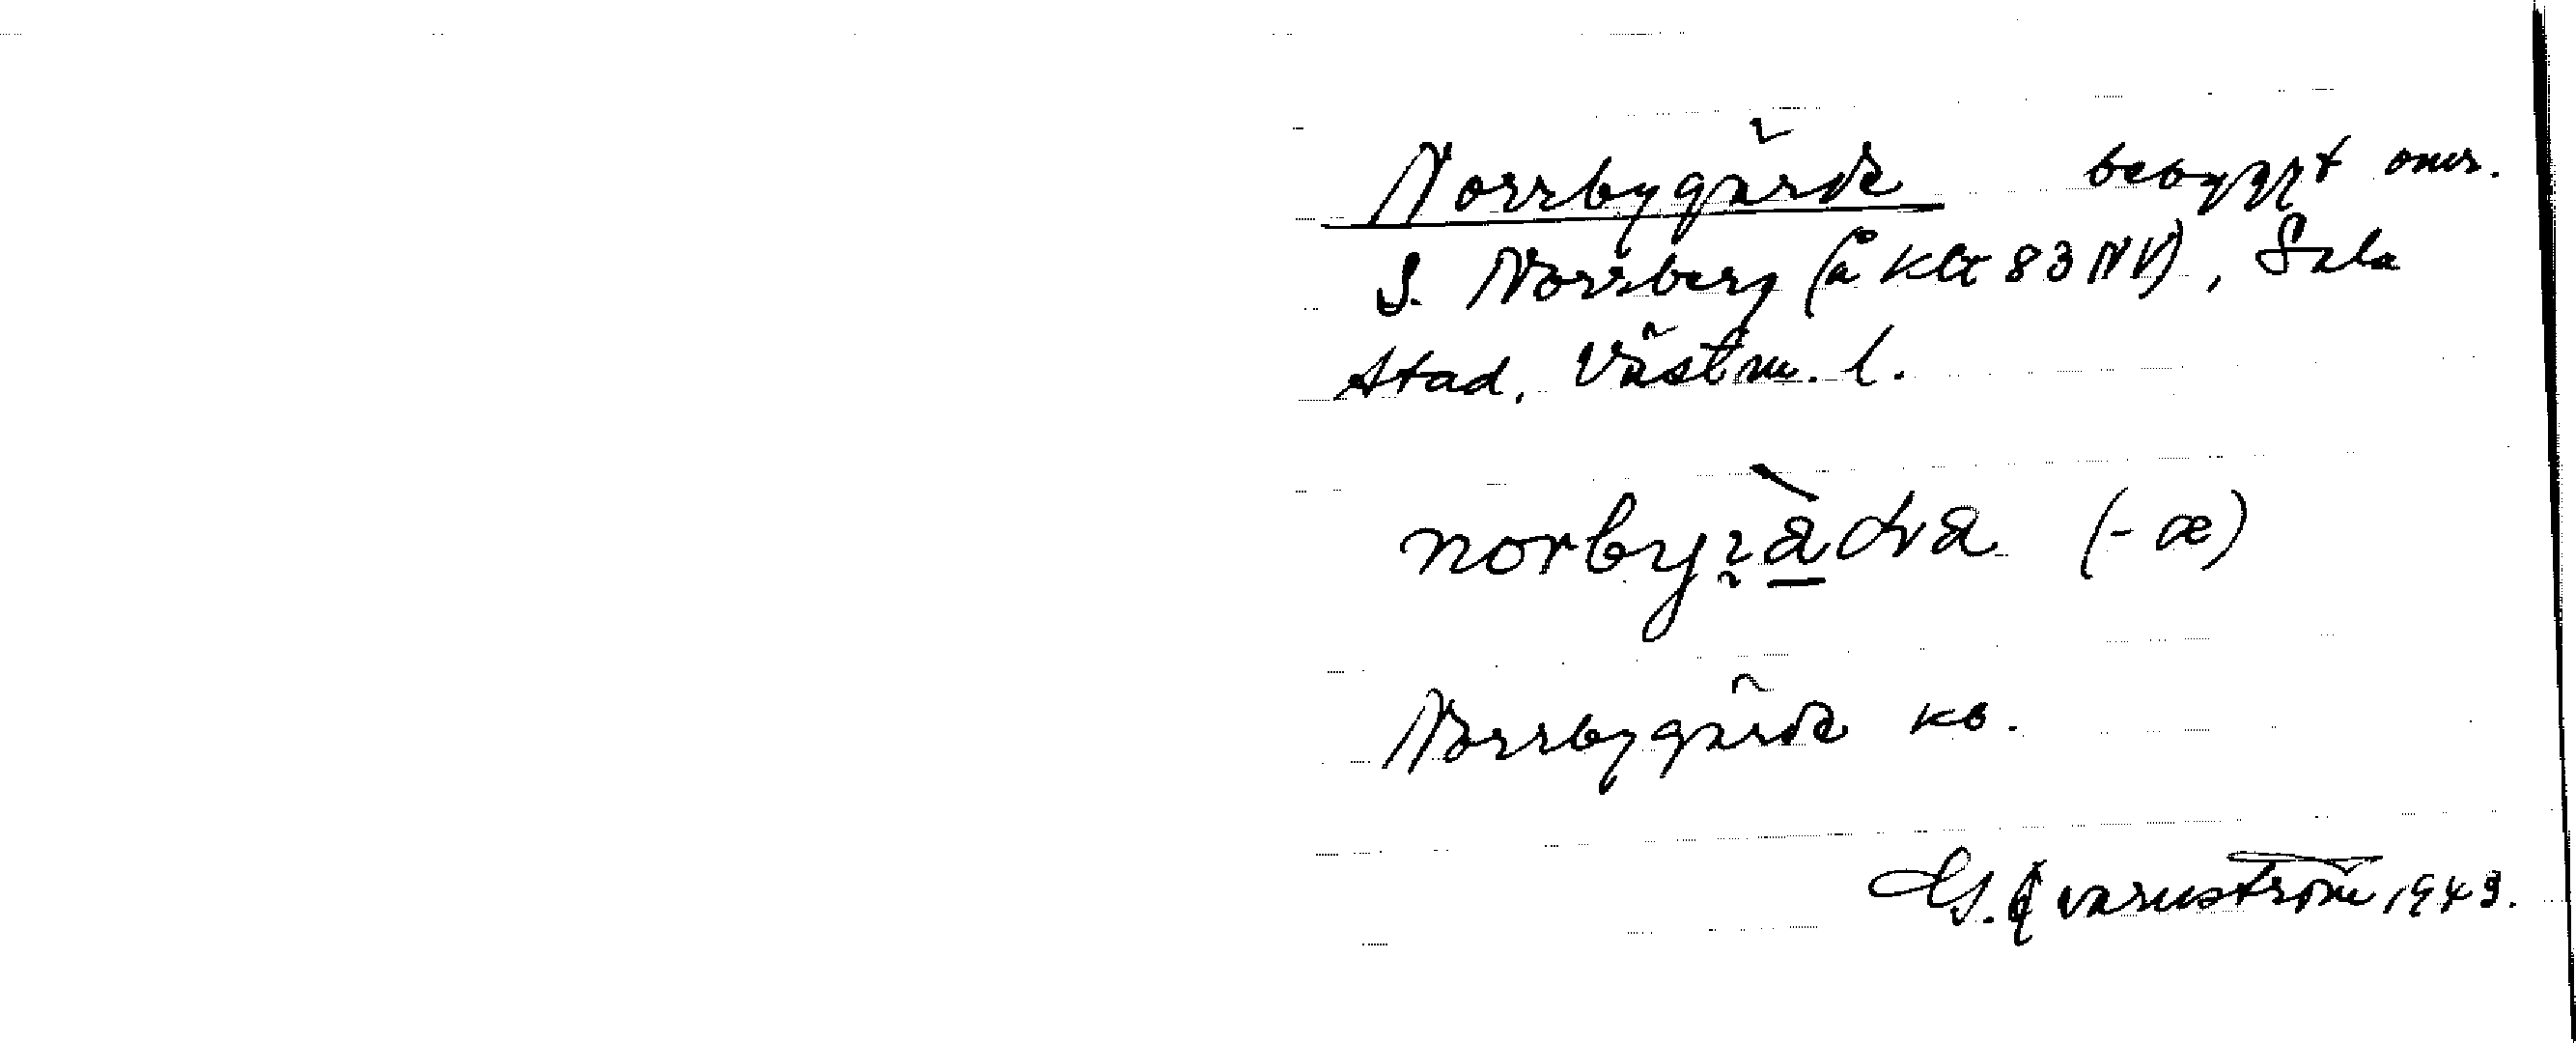 Norrbygärde bebyggt omr.
S. Norrberg (å Kbl 83 NV), Sala
stad, Västm. l.
(-æ)
Norrbygärde kb.
G. Qvarnström 1943.